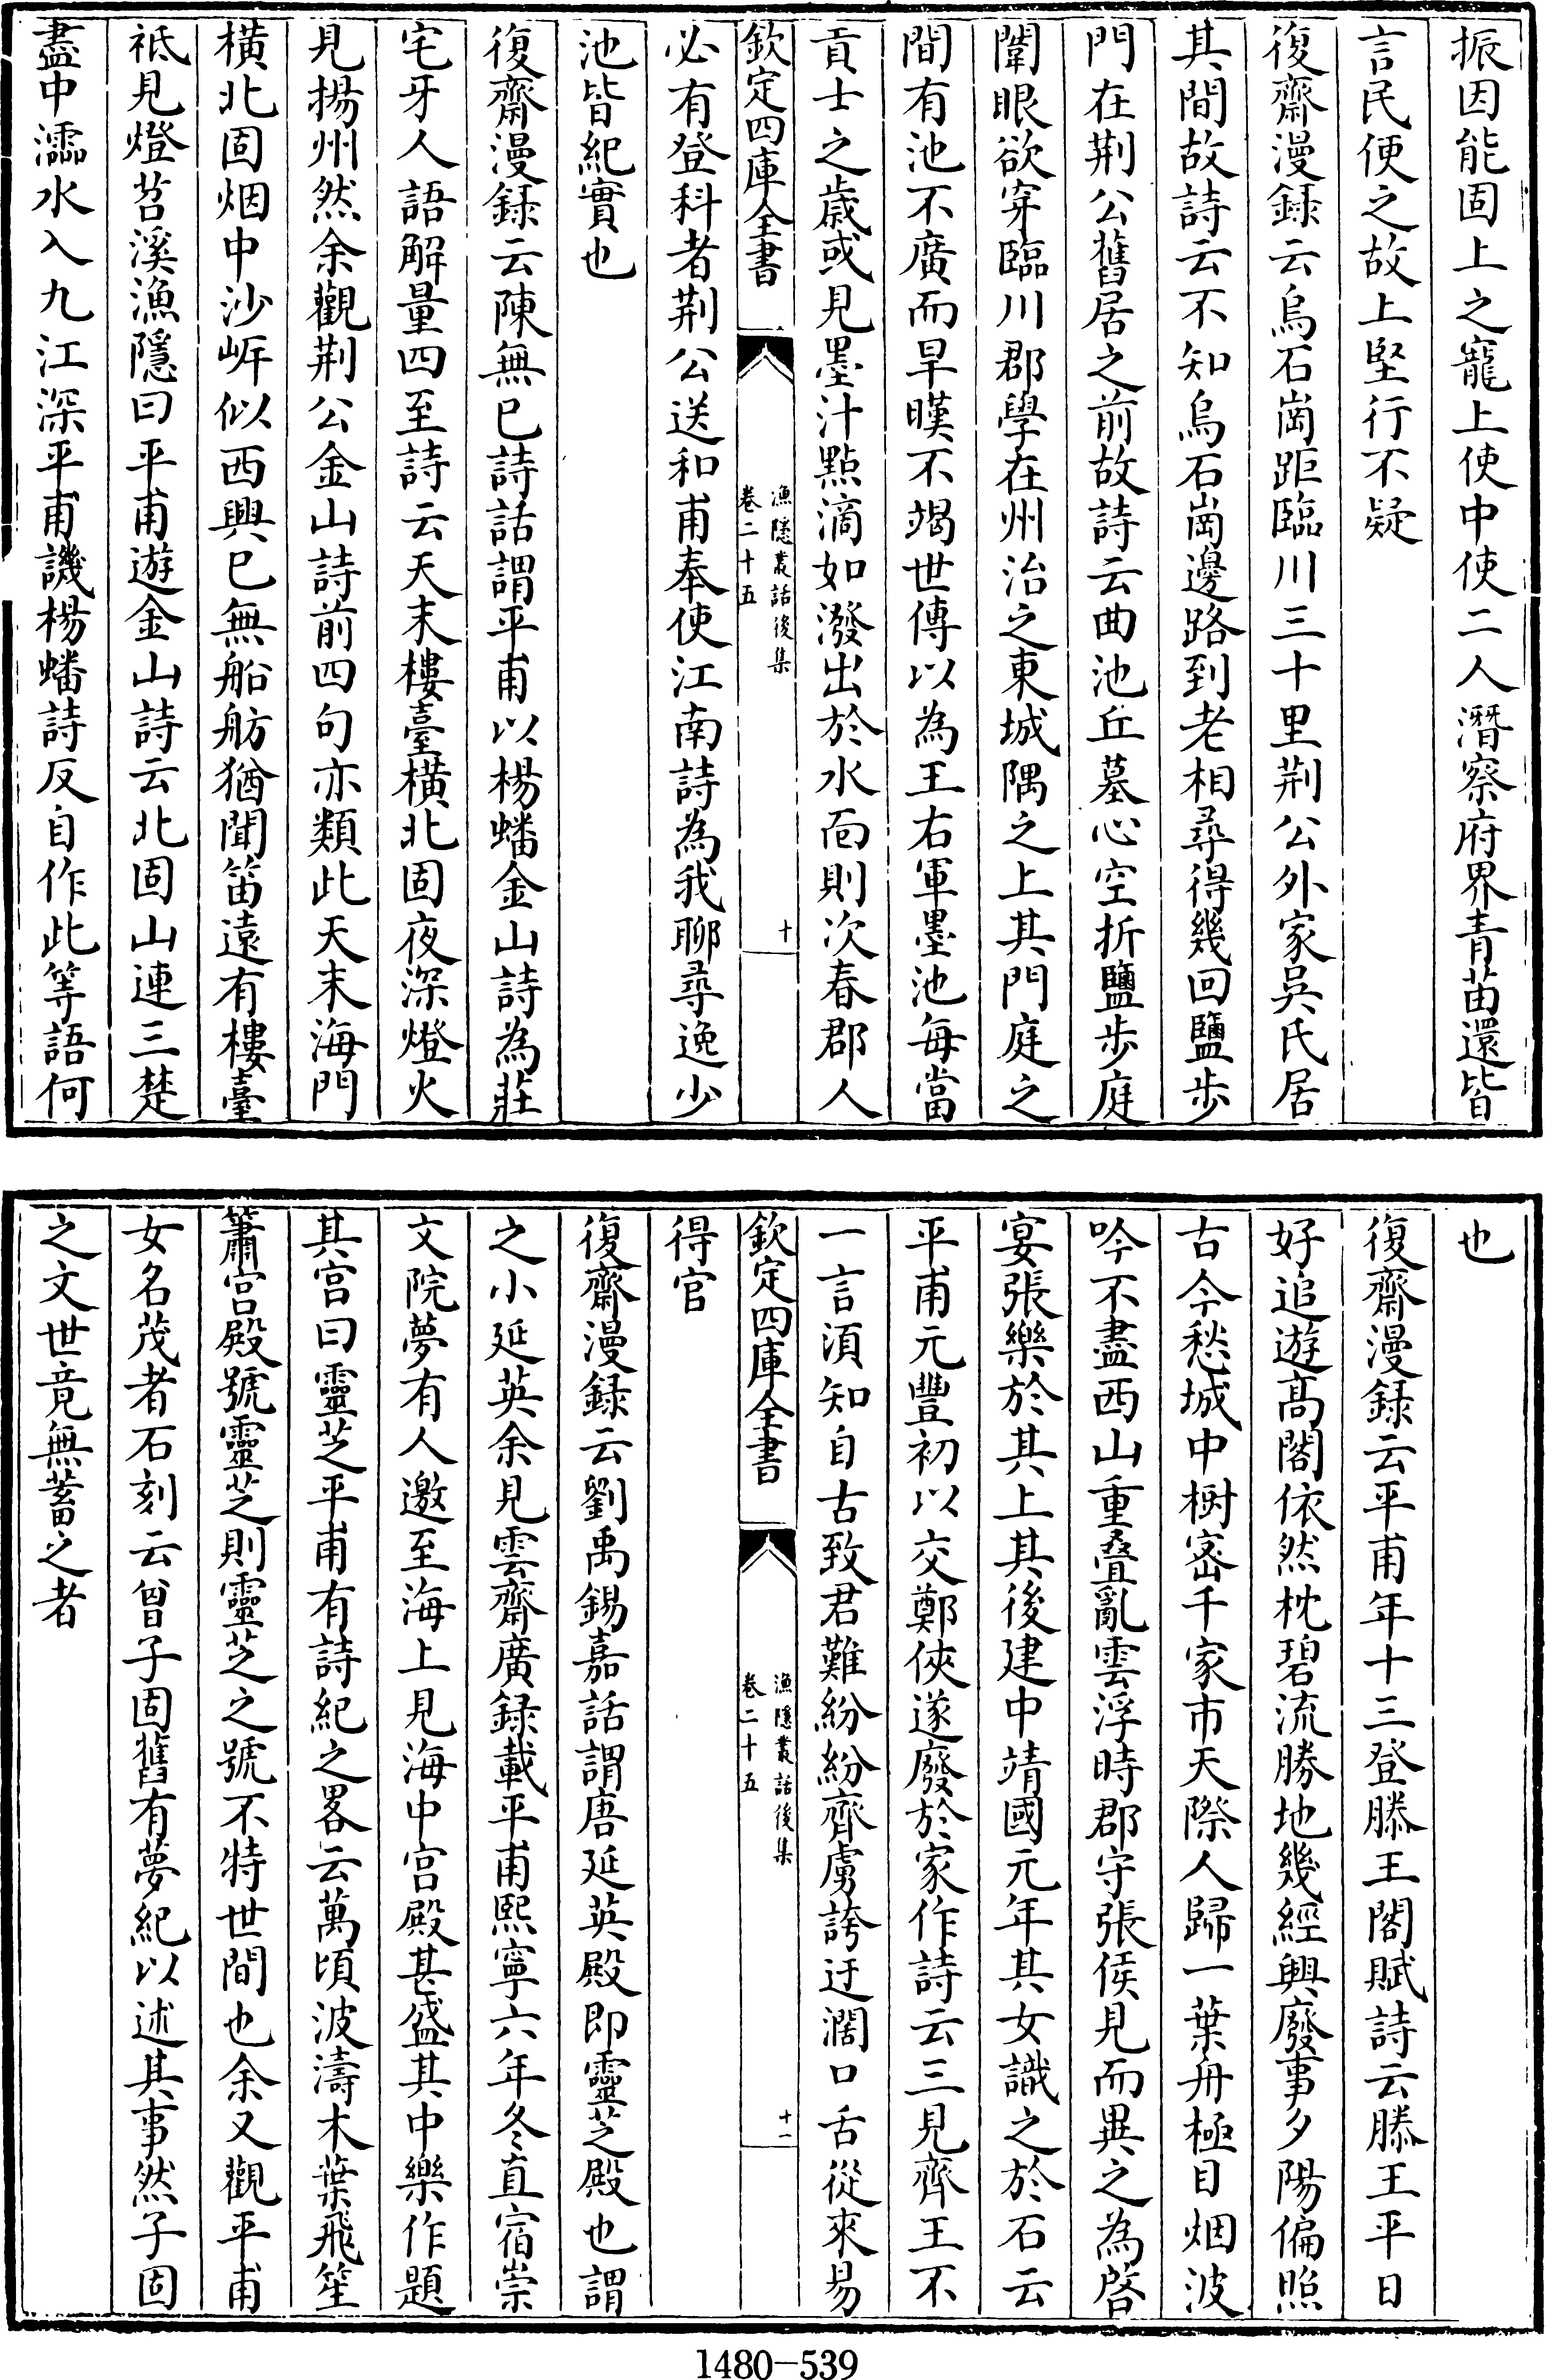 振因能固上之寵上使中使二人潛察府界青苗還皆
言民便之故上堅行不疑
復齋漫録云烏石崗距臨川三十里荆公外家吳氏居
其間故詩云不知烏石崗邊路到老相尋得幾回鹽步
門在荆公舊居之前故詩云曲池丘墓心空折鹽步庭
闈眼欲穿臨川郡學在州治之東城隅之上其門庭之
間有池不廣而旱暵不竭世傳以為王右軍墨池每當
貢士之歲或見墨汁點滴如潑出於水面則次春郡人
欽定四庫全書
漁隱叢話後集
卷二十五
十
必有登科者荆公送和甫奉使江南詩為我聊尋逸少
池皆紀實也
復齋漫録云陳無已詩話謂平甫以楊蟠金山詩為莊
宅牙人語解量四至詩云天末樓臺橫北固夜深燈火
見揚州然余觀荆公金山詩前四句亦類此天末海門
橫北固烟中沙岸似西興已無船舫猶聞笛遠有樓臺
祗見燈苕溪漁隱曰平甫遊金山詩云北固山連三楚
盡中濡水入九江深平甫譏楊蟠詩反自作此等語何
也
復齋漫録云平甫年十三登滕王閣賦詩云滕王平日
好追遊髙閣依然枕碧流勝地幾經興廢事夕陽偏照
古今愁城中樹宻千家市天際人歸一葉舟極目烟波
吟不盡西山重叠亂雲浮時郡守張侯見而異之為啓
宴張樂於其上其後建中靖國元年其女識之於石云
平甫元豐初以交鄭俠遂廢於家作詩云三見齊王不
一言須知自古致君難紛紛齊虜誇迂濶口舌從來易
欽定四庫全書
漁隱叢話後集
卷二十五
十一
得官
復齋漫録云劉禹錫嘉話謂唐延英殿即靈芝殿也謂
之小延英余見雲齋廣録載平甫熙寧六年冬直宿崇
文院夢有人邀至海上見海中宫殿甚盛其中樂作題
其宫曰靈芝平甫有詩紀之畧云萬頃波濤木葉飛笙
簫宫殿號靈芝則靈芝之號不特世間也余又觀平甫
女名茂者石刻云曾子固舊有夢紀以述其事然子固
之文世竟無蓄之者
1480-539